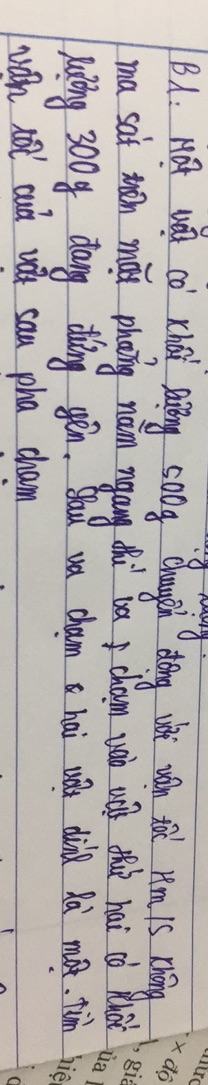 B1: Một vật có khối lượng 500g chuyển động với vận tốc 4m/s không
ma sát trên mặt phẳng nằm ngang thì va chạm vào vật thứ hai có khối
lượng 300g đang đứng yên. Sau va chạm hai vật dính là một. Tìm
vận tốc của vật sau pha chạm